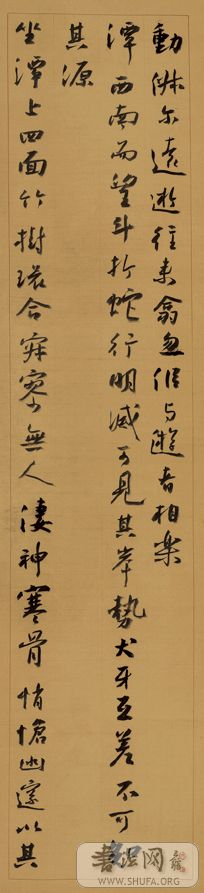 動俶尔遠逝往来翕忽似与遊者相樂
潭西南而望斗折蛇行明滅可見其岸勢犬牙互差不可
其源
坐潭上四面竹樹環合寂寥無人淒神寒骨悄愴幽邃以其
WWW.SHUFA.ORG